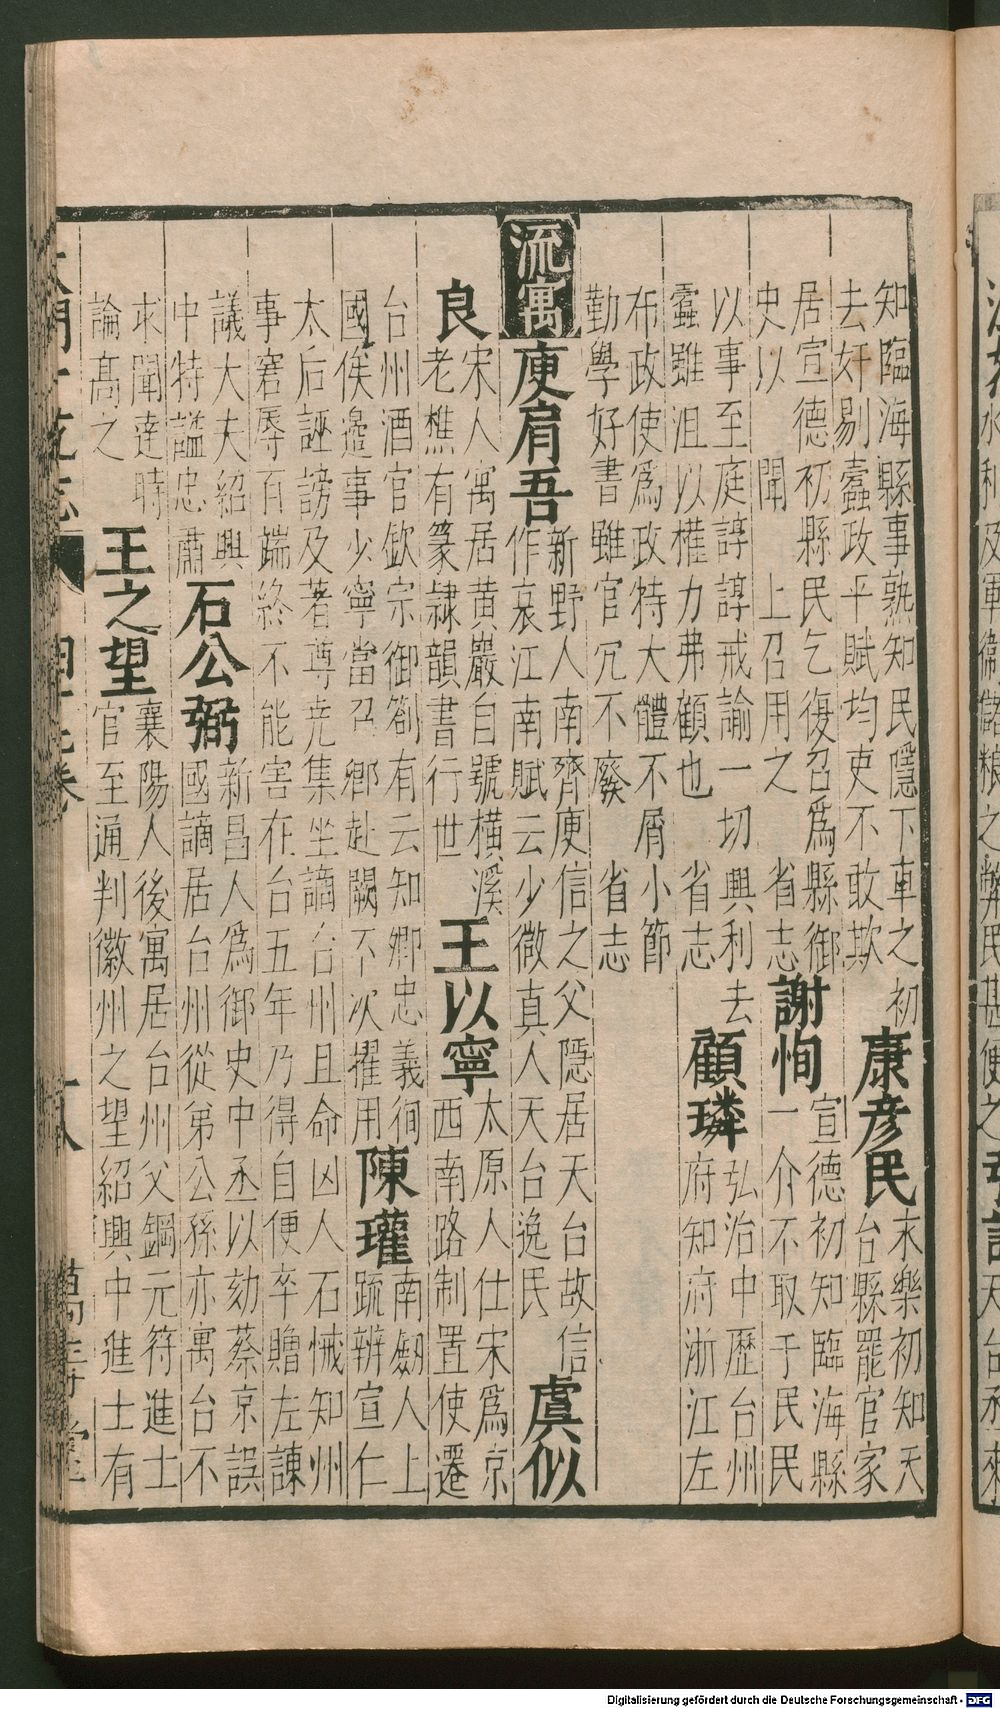 知臨海縣事熟知民隱下車之初
去奸剔蠹政平賦均吏不敢欺
康彥民
末樂初知天
台縣罷官家
居宣德初縣民乞復召爲縣御
史以 聞 上召用之 省志
謝恂
宣德初知臨海縣
一介不取于民民
以事至庭諄諄戒諭一切興利去
蠹雖沮以權力弗顧也 省志
顧璘
弘治中歷台州
府知府浙江左
布政使爲政特大體不屑小節
勤學好書雖官冗不廢 省志
流寓
庾肩吾
新野人南齊庾信之父隱居天台故信
作哀江南賦云少微真人天台逸民
虞似
良
宋人寓居黃巖自號橫溪
老樵有篆隷韻書行世
王以寧
太原人仕宋爲京
西南路制置使遷
台州酒官欽宗御劄有云知卿忠義徇
國俟邊事少寧當召卿赴闕不次擢用
陳瓘
南劒人上
䟽辨宣仁
太后誣謗及著尊尭集坐謫台州且命凶人石悈知州
事窘辱百端終不能害在台五年乃得自便卒贈左諫
議大夫紹興
中特諡忠肅
石公弼
新昌人爲御史中丞以劾蔡京誤
國謫居台州從弟公孫亦寓台不
求聞達時
論高之
王之望
襄陽人後寓居台州父鋼元符進士
官至通判徽州之望紹興中進士有
Digitalisierung gefördert durch die Deutsche Forschungsgemeinschaft - DFG